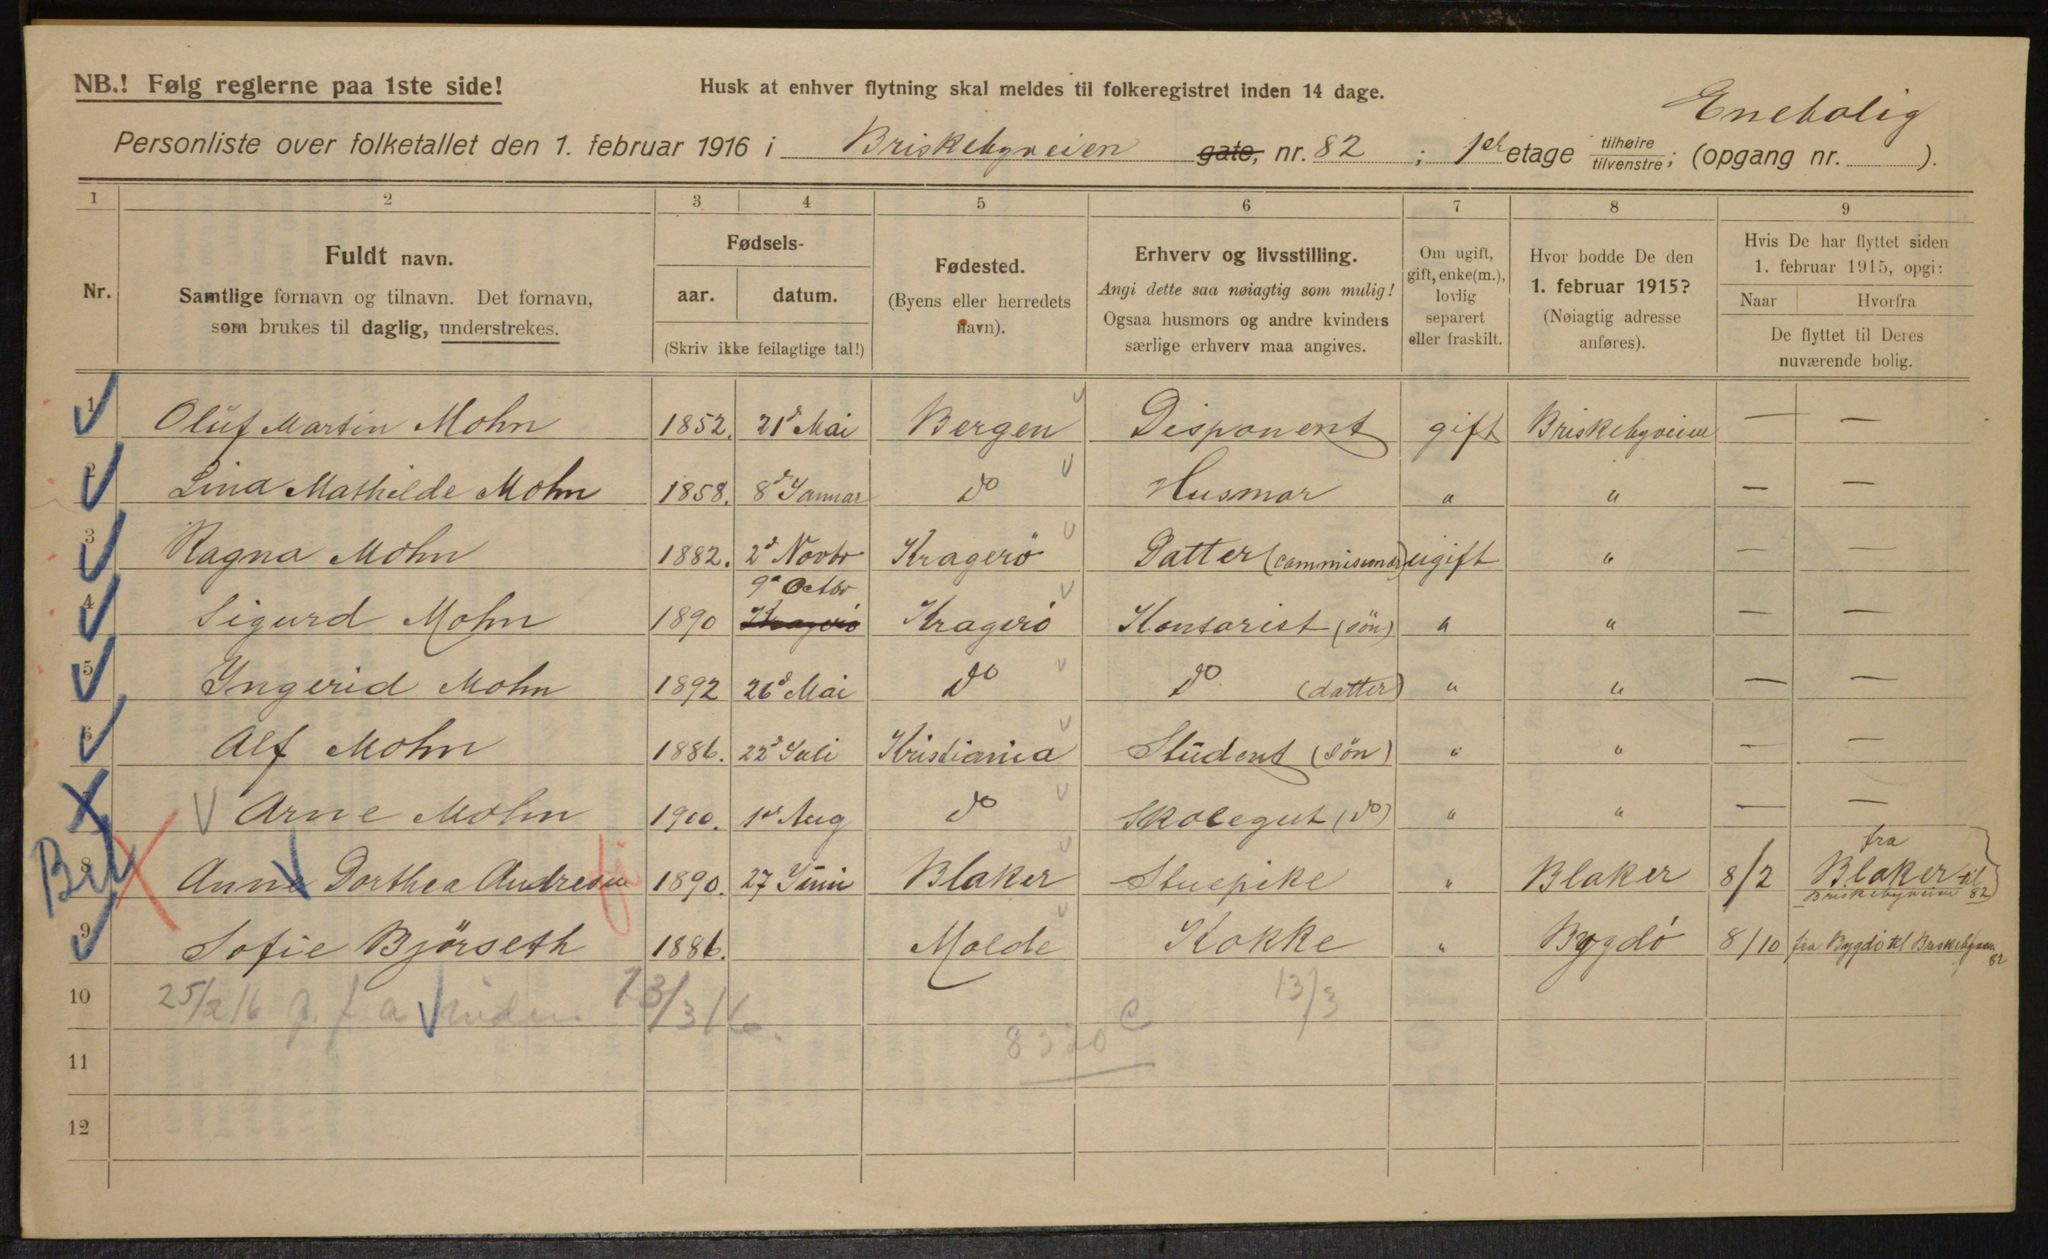 NB.! Følg reglerne paa 1ste side!
Husk at enhver flytning skal meldes til folkeregistret inden 14 dage.
Enebolig
Personliste over folketallet den 1. februar 1916 i Briskebyveien gate, nr. 82 ; 1ste etage tilhøire tilvenstre; (opgang nr. ).
1 2 3 4 5 6 7 8 9
Nr.
Fuldt navn.
Samtlige fornavn og tilnavn. Det fornavn,
som brukes til daglig, understrekes.
Fødsels-
aar. datum.
(Skriv ikke feilagtige tal!)
Fødested.
(Byens eller herredets
navn).
Erhverv og livsstilling.
Angi dette saa nøiagtig som mulig!
Ogsaa husmors og andre kvinders
særlige erhverv maa angives.
Om ugift,
gift, enke(m.),
lovlig
separert
eller fraskilt.
Hvor bodde De den
1. februar 1915?
(Nøiagtig adresse
anføres).
Hvis De har flyttet siden
1. februar 1915, opgi:
Naar Hvorfra
De flyttet til Deres
nuværende bolig.
1 Oluf Martin Mohn 1852. 21d Mai Bergen Disponent gift Briskebyveien — —
2 Lina Mathilde Mohn 1858. 8d Januar do Husmor " " — —
3 Ragna Mohn 1882. 2d Novbr Kragerö Datter ugift " — —
9d Octbr
4 Sigurd Mohn 1890 Kragerö Kragerö Kontorist (sön) " " — —
5 Yngerid Mohn 1892 26d Mai do do (datter) " " — —
6 Alf Mohn 1886. 22d Juli Kristiania Student (sön) " " — —
7 Arne Mohn 1900. 1st Aug do Skolegut (do) " " — —
fra
8 Anne Dorthea Andresen 1890. 27 Juni Blaker Stuepike " Blaker 8/2 Blaker til
Briskebyveien 82
9 Sofie Bjørseth 1886. Molde Kokke " Bygdö 8/10 fra Bygdö til Briskebyveien
82
10 25/2 16 13/3 16. 13/3
8320 C
11
12